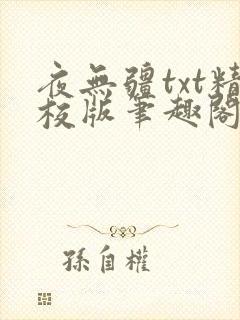 夜無疆txt精
校版筆趣閣
孫自權